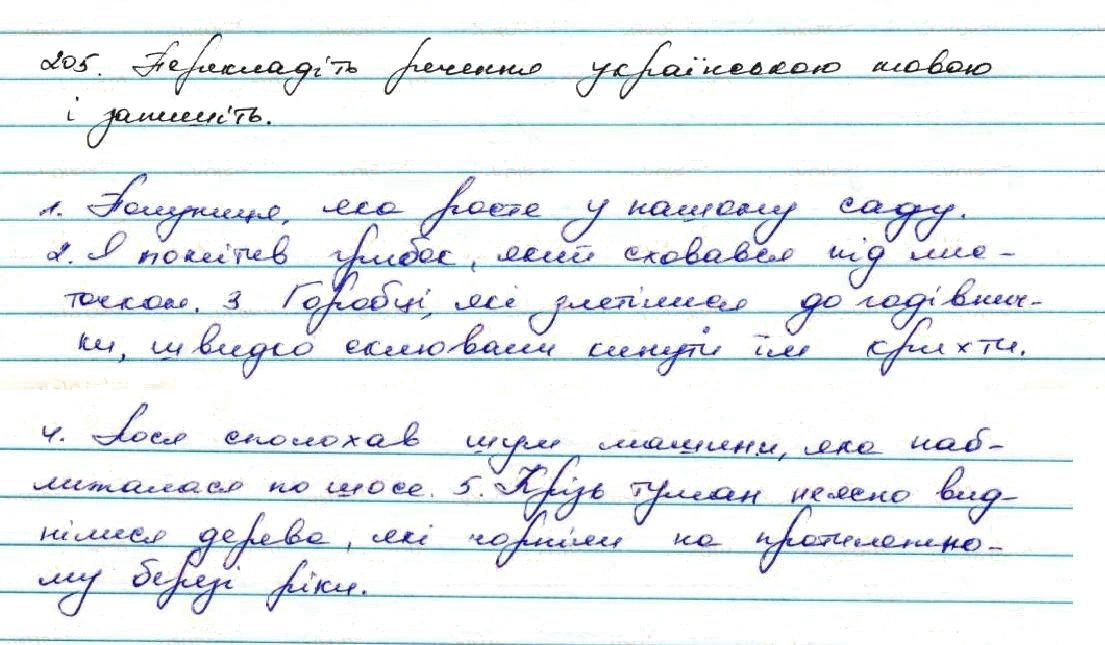 205. Перекладіть речення українською мовою
і запишіть.
1. Полуниця, яка росте у нашому саду.
2. Я помітив грибок, який сховався під лис-
точком. 3 Горобці, які злетілися до годівнич-
ки, швидко склювали кинуті їм крихти.
4. Лося сполохав шум машини, яка наб-
лижалася по шосе. 5. Крізь туман неясно вид-
нілися дерева, які чорніли на протилежно-
му березі ріки.